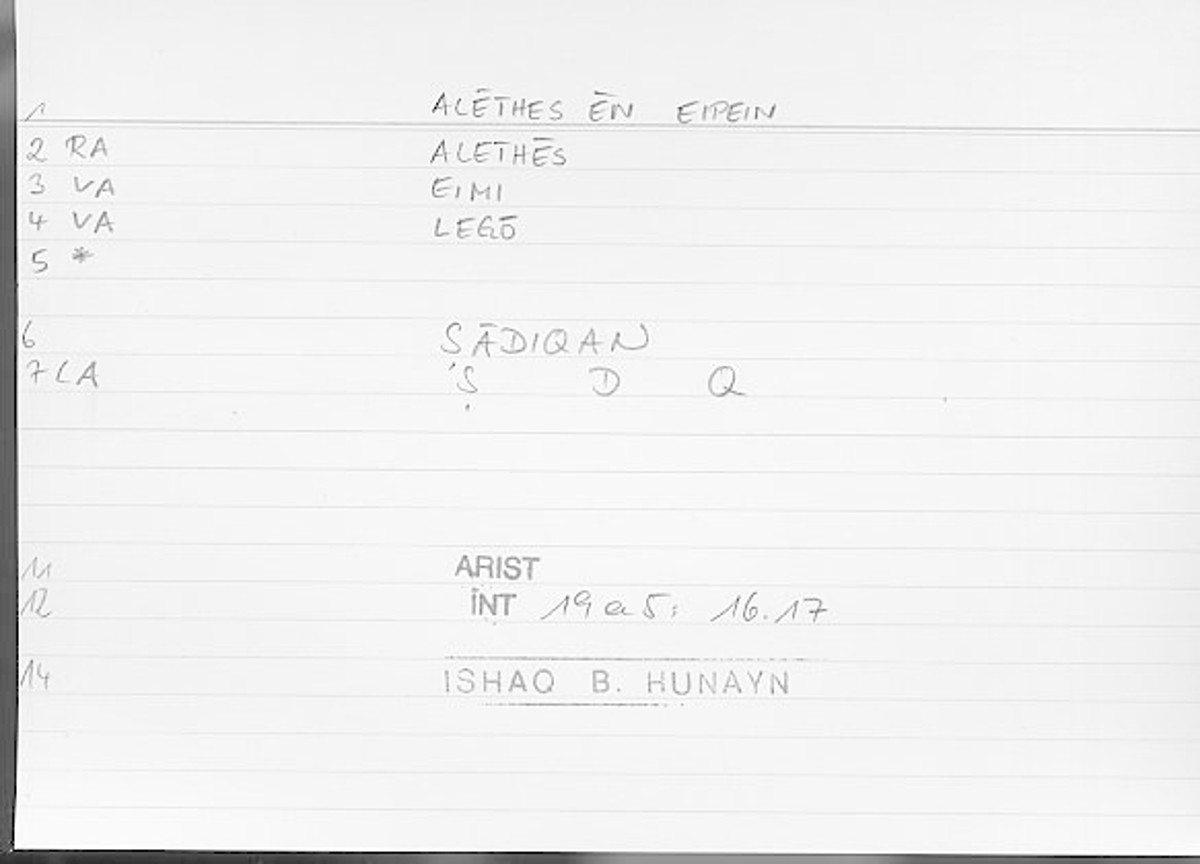 1 ALĒTHES ĒN EIPEIN
2 RA ALETHĒS
3 VA EIMI
4 VA LEGŌ
5 *
6 ṢĀDIQAN
7 LA Ṣ D Q
11 ARIST
12 INT 19 a 5; 16.17
14 ISHAQ B. HUNAYN